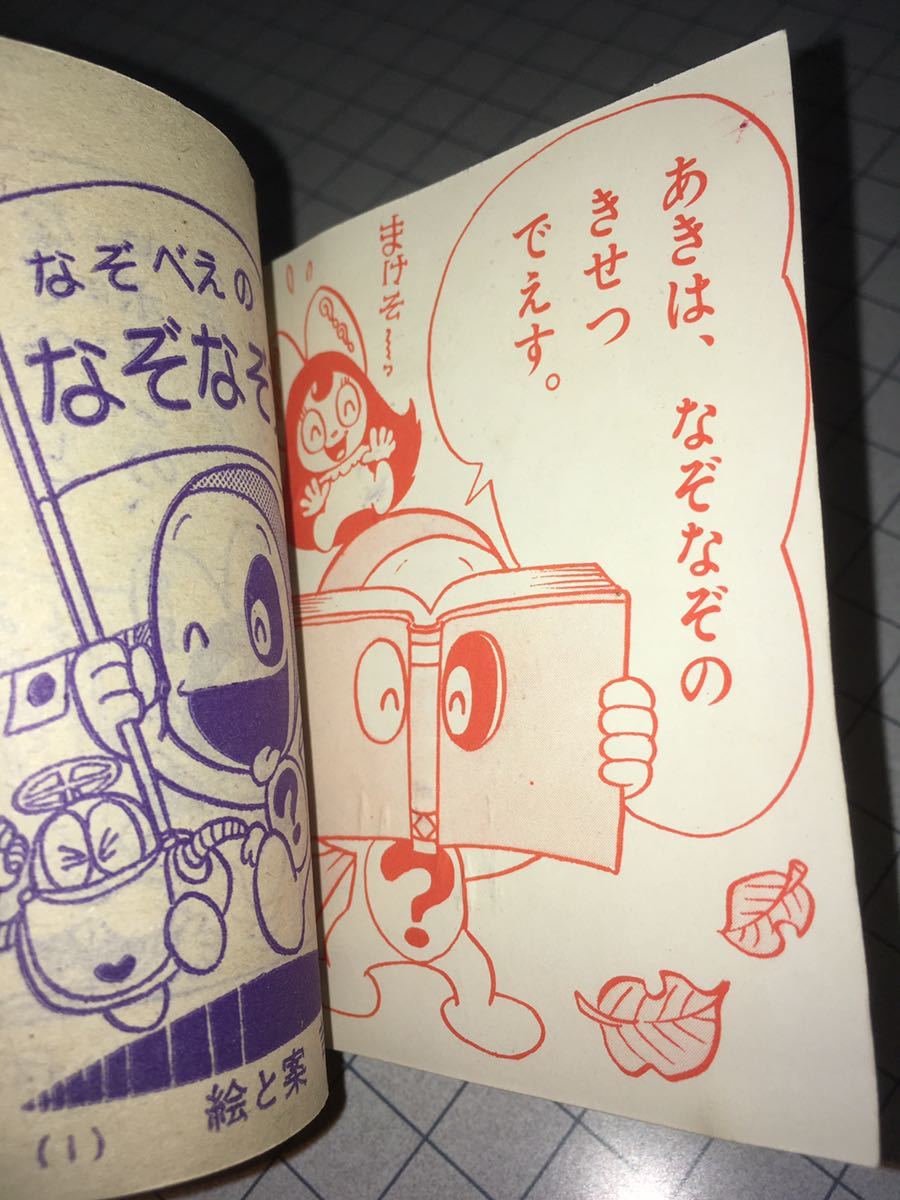 なぞべえの
なぞなぞ
絵と案
(1)
あきは、なぞなぞの
きせつ
でえす。
まけそ〜っ
?
?